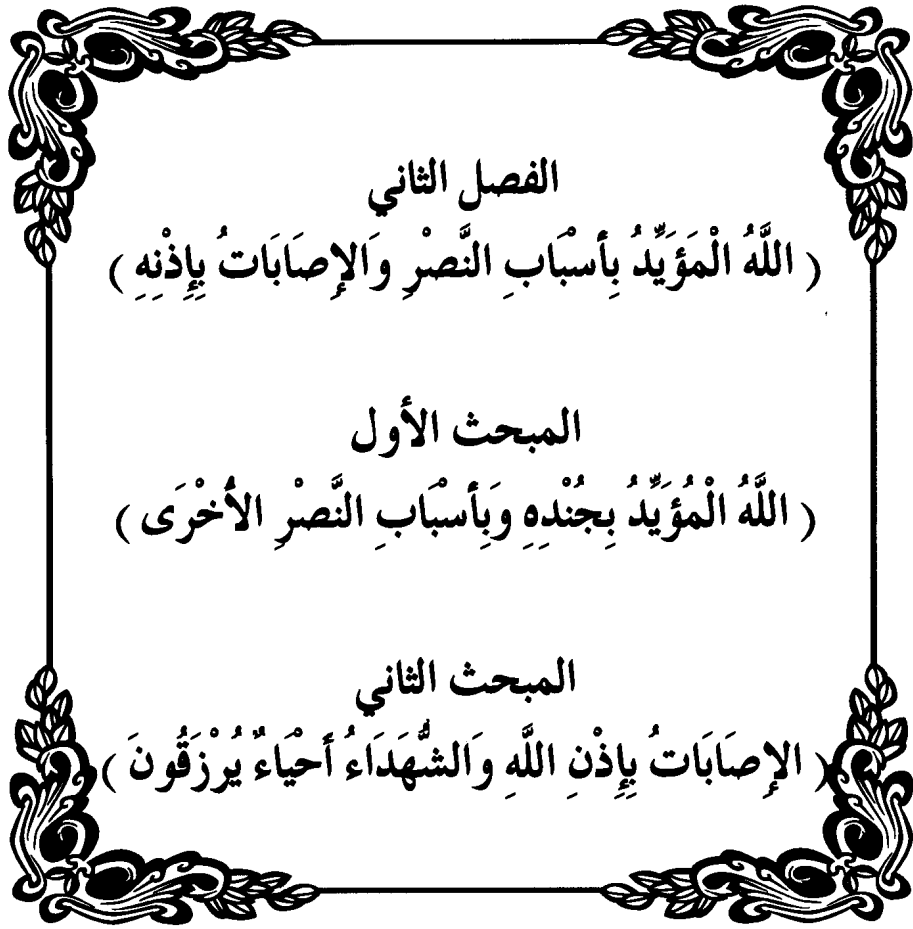 الفصل الثاني
( اللَّهُ الْمَؤَيِّدُ بِأَسْبَابِ النَّصْرِ وَالإِصَابَاتُ بِإِذْنِهِ )
المبحث الأول
( اللَّهُ الْمُؤَيِّدُ بِجُنْدِهِ وَبِأَسْبَابِ النَّصْرِ الأُخْرَى )
المبحث الثاني
( الإِصَابَاتُ بِإِذْنِ اللَّهِ وَالشُّهَدَاءُ أَحْيَاءٌ يُرْزَقُونَ )